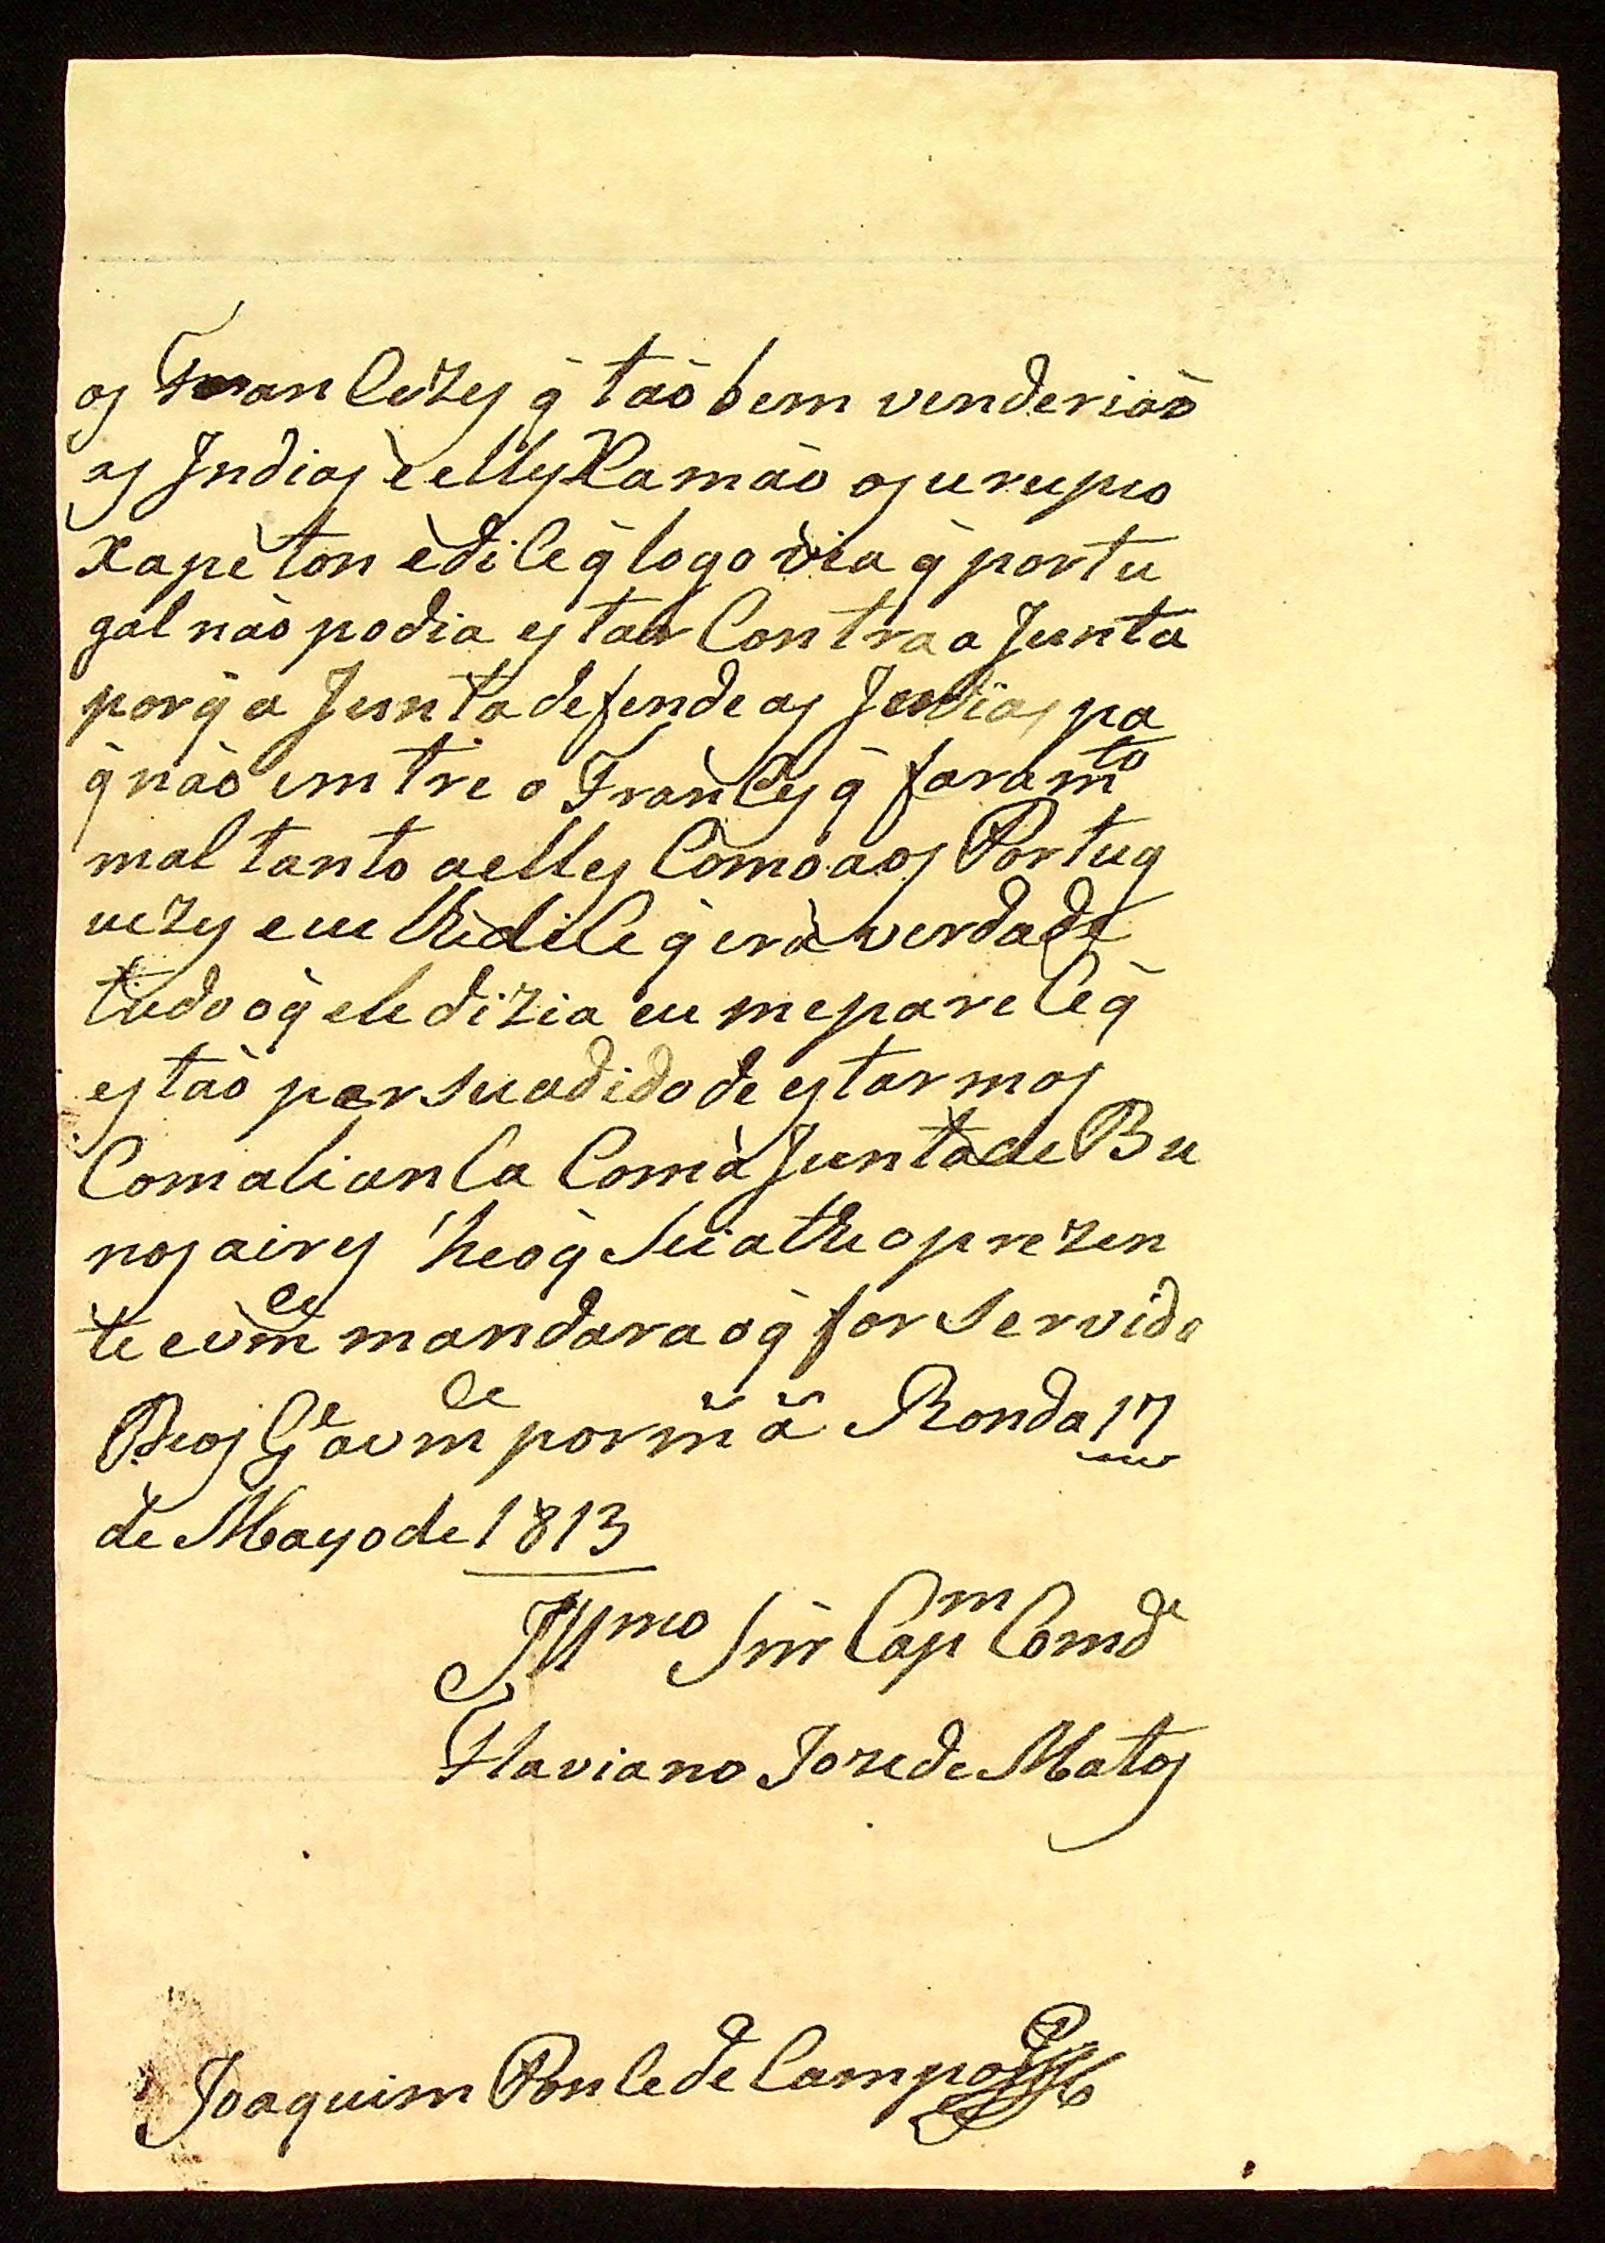 os FranCezes q̃ taõ bem venderiaõ
as Indias e elles Xamaõ os urupeo
xapeton e diCe q̃ logo via q̃ portu
gal naõ podia estar Contra a Junta
porq̃ a Junta defende as Indias pa
q̃ naõ emtre o FranCes q̃ fara mto
mal tanto a elles Como aos Portug
uezes e eu lhe diCe q̃ era verdade
tudo o q̃ ele dizia eu me pareCe q̃
estaõ persuadido de estarmos
Com alianCa Com a Junta de Bu
nos aires he o q̃ Sei athe o prezen
te e vmce mandara o q̃ for Servido
Deos Ge a vmce por m̃ ã Ronda 17
de Mayo de 1813
Illmo Snr Capm Comde
Flaviano Joze de Matos
Joaquim PonCe de Campos